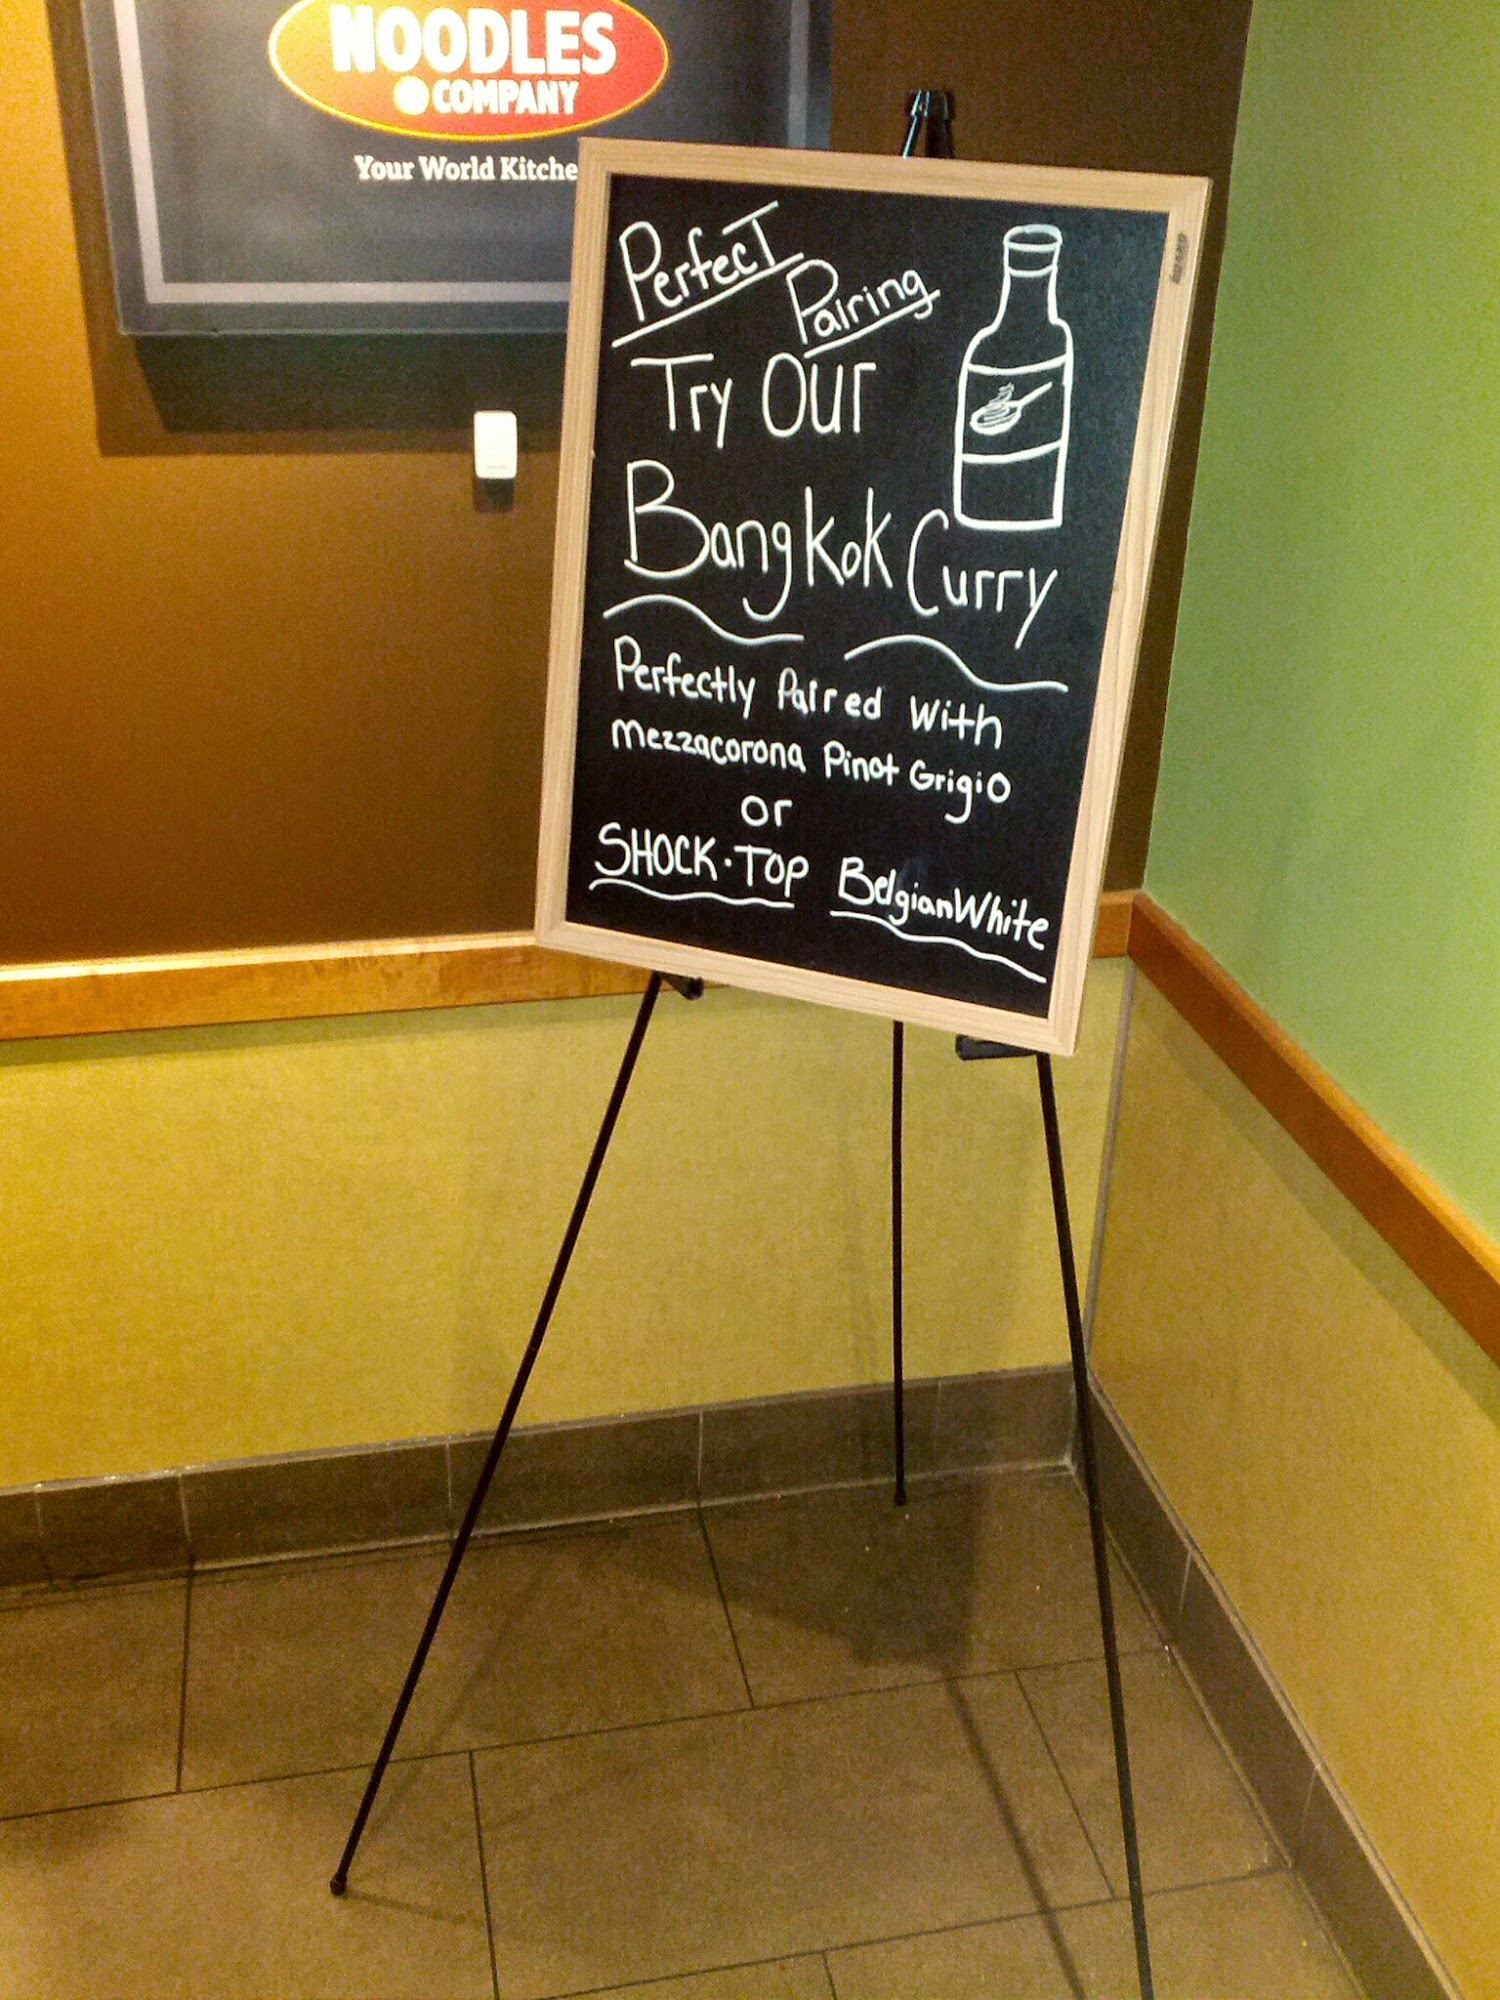 NOODLES
& COMPANY
Your World Kitche
PerfecT
Pairing
Try Our
Bangkok Curry
Perfectly Paired With
Mezzacorona Pinot Grigio
or
SHOCK·TOP Belgian White